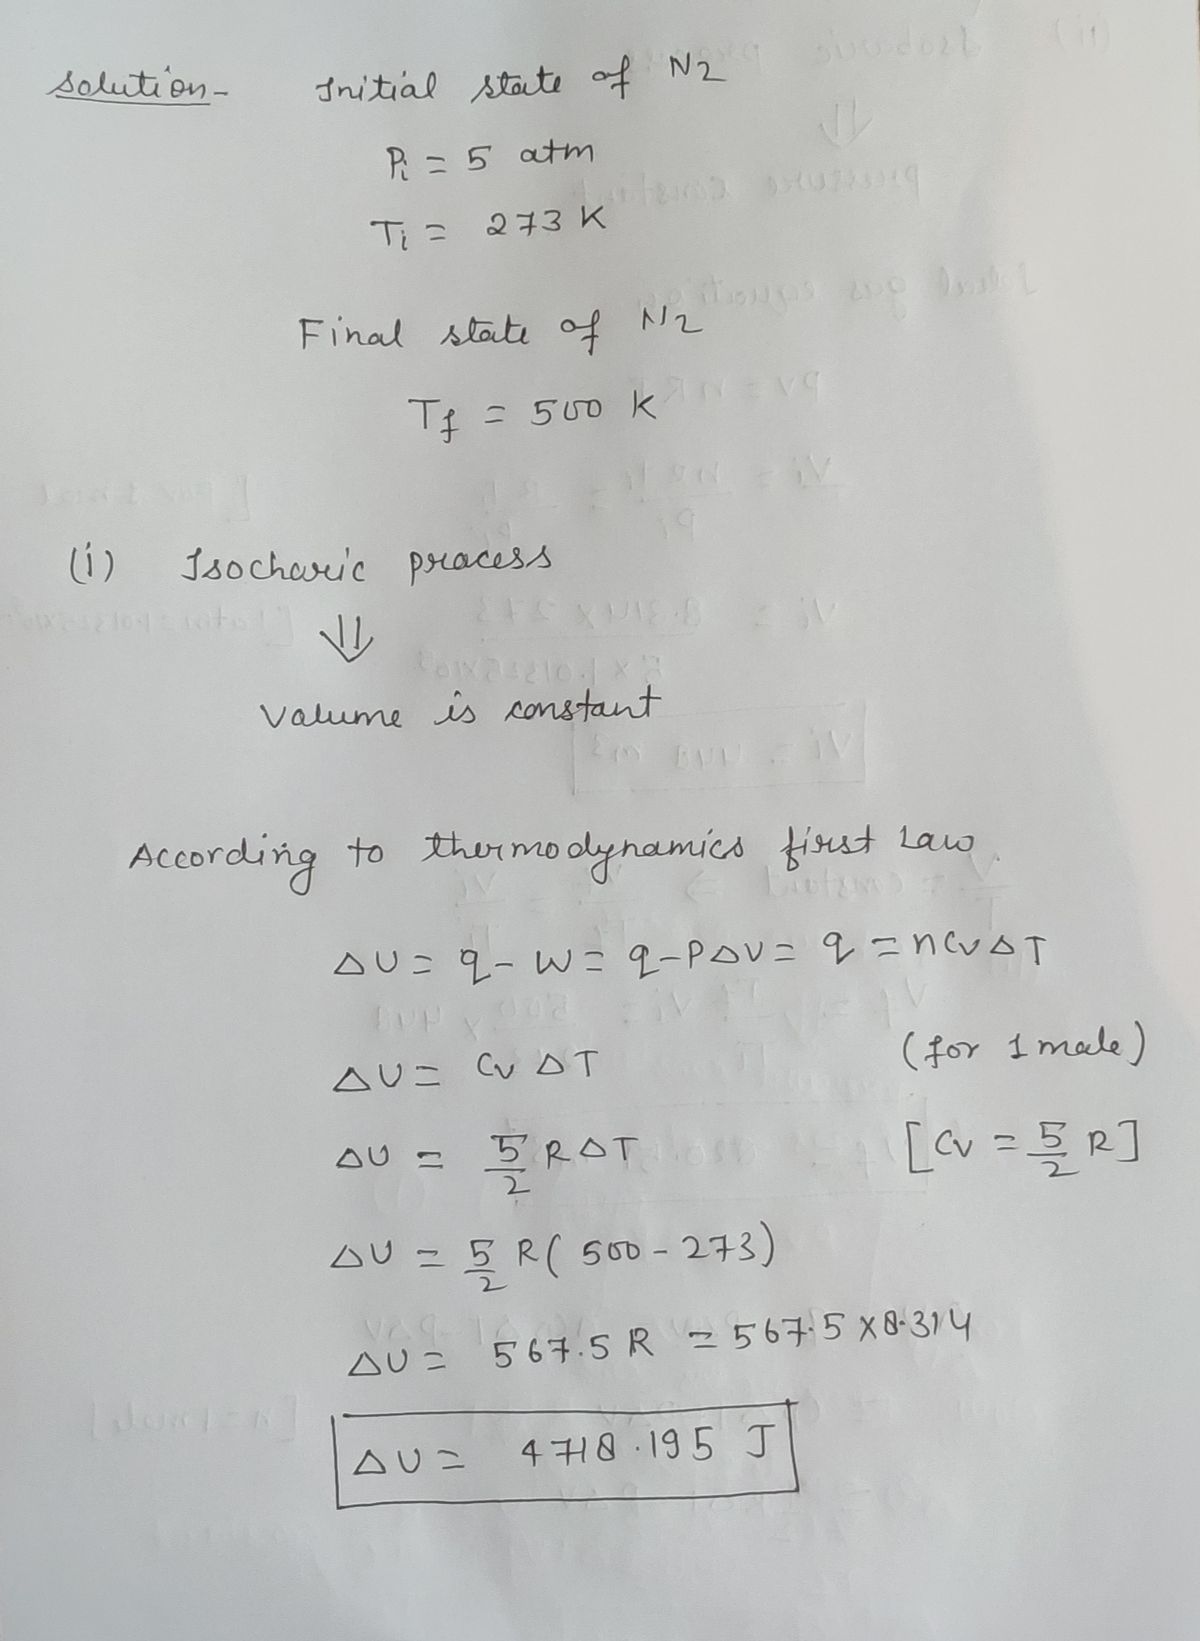 Solution- Initial state of N2
Pi = 5 atm
Ti = 273 K
Final state of N2
Tf = 500 K
(i) Isocharic process
⇓
Valume is constant
According to thermodynamics first Law.
ΔU = q - W = q - PΔV = q = nCvΔT
ΔU = Cv ΔT (for 1 male)
ΔU = 5/2 RΔT [Cv = 5/2 R]
ΔU = 5/2 R( 500 - 273)
ΔU = 567.5 R = 567.5 X 8.314
ΔU = 4718.195 J